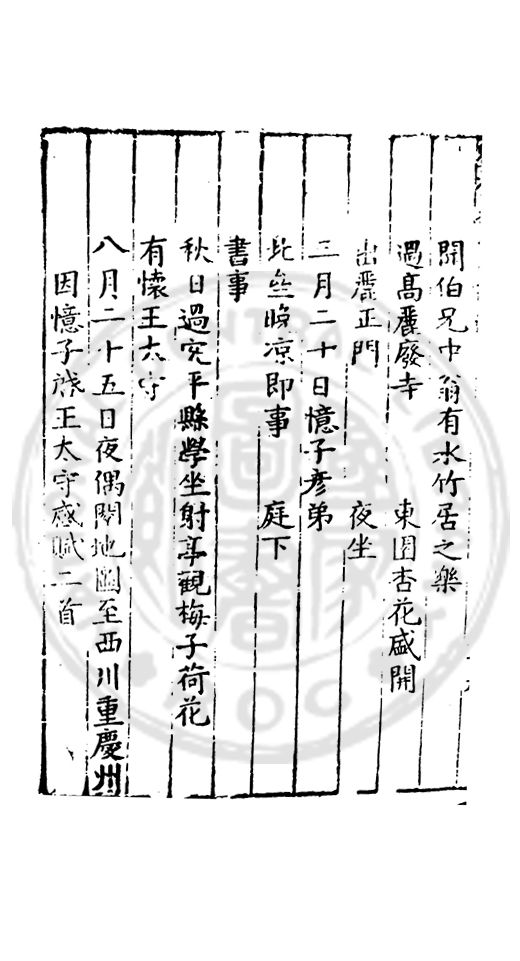 聞伯兄中翁有水竹居之樂
過高麗廢寺 東園杏花盛開
出麗正門 夜坐
三月二十日憶子彥弟
北壘晚凉即事 庭下
書事
秋日過宛平縣學坐射亭觀梅子荷花
有懷王太守
八月二十五日夜偶閱地圖至西川重慶州
因憶子啟王太守感賦二首